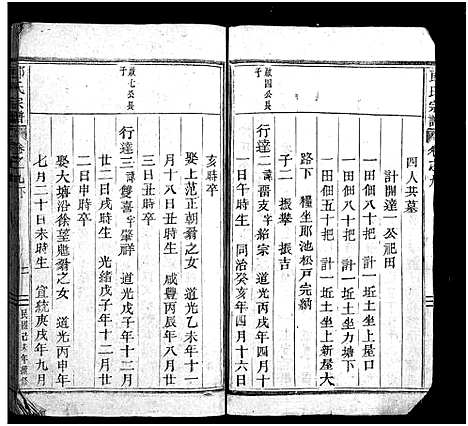 四人共墓
計開達一公祀田
一田佃八十把 計一近土坐上屋口
一田佃八十把 計一近土坐力塘下
一田佃五十把 計一近土坐上新屋大
路下 糧坐耶池松戸完納
子二 振舉 振吉
啟四公長子
行達二 諱晋支字紹宗 道光丙戌年四月十
一日午時生 同治癸亥年四月十六日
亥時卒
娶上范正朝翁之女 道光乙未年十一
月十八日辰時生 咸豐丙辰年八月廿
三日丑時卒
啟七公長子
行達三 諱雙喜字肇祥 道光戊子年十二月
廿二日戌時生 光緒戊子年十二月廿
二日申時卒
娶大塘沿徐望魁翁之女 道光丙申年
七月二十日未時生 宣統庚戌年九月
氏宗譜 卷之九下
民國己未年續修